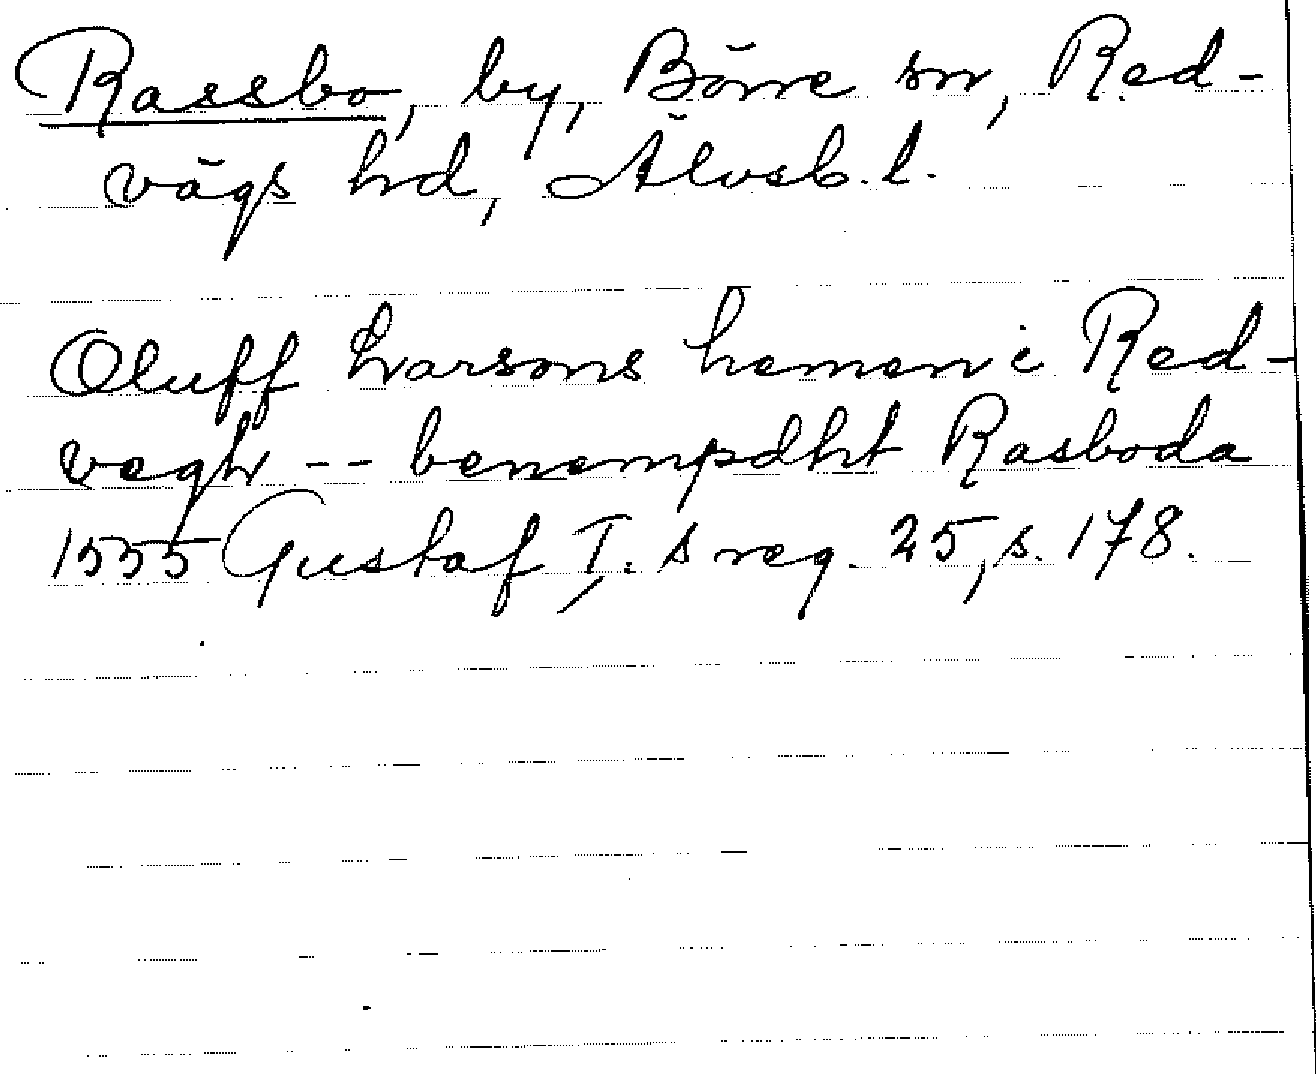 Rassbo, by, Böne sn, Red-
vägs hd, Älvsb. l.
Oluff Larsons hemen i Red-
vegh -- benempdht Rasboda
1555 Gustaf I. s reg. 25, s. 178.